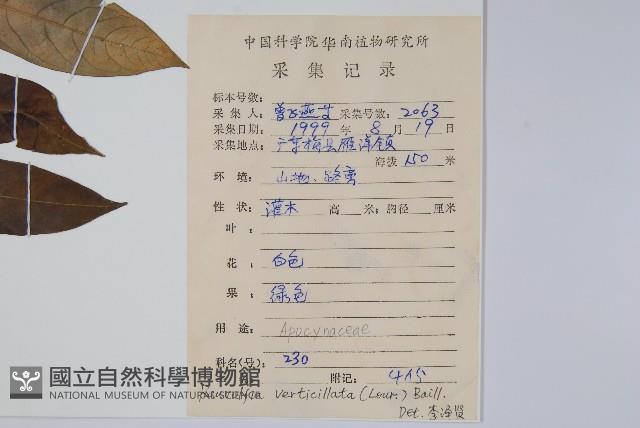 中国科学院华南植物研究所
采集记录
标本号数：
采集人：曾飞燕 采集号数：2063
采集日期：1999年8月19日
采集地点：广东梅县雁洋镇
海拔150米
环境：山地、路旁
性状：灌木 高 米；胸径 厘米
叶：
花：白色
果：绿色
用途：Apocynaceae
科名(号)：230
附记：4份
國立自然科學博物館
NATIONAL MUSEUM OF NATURAL SCIENCE
verticillata (Lour.) Baill.
Det. 李泽贤